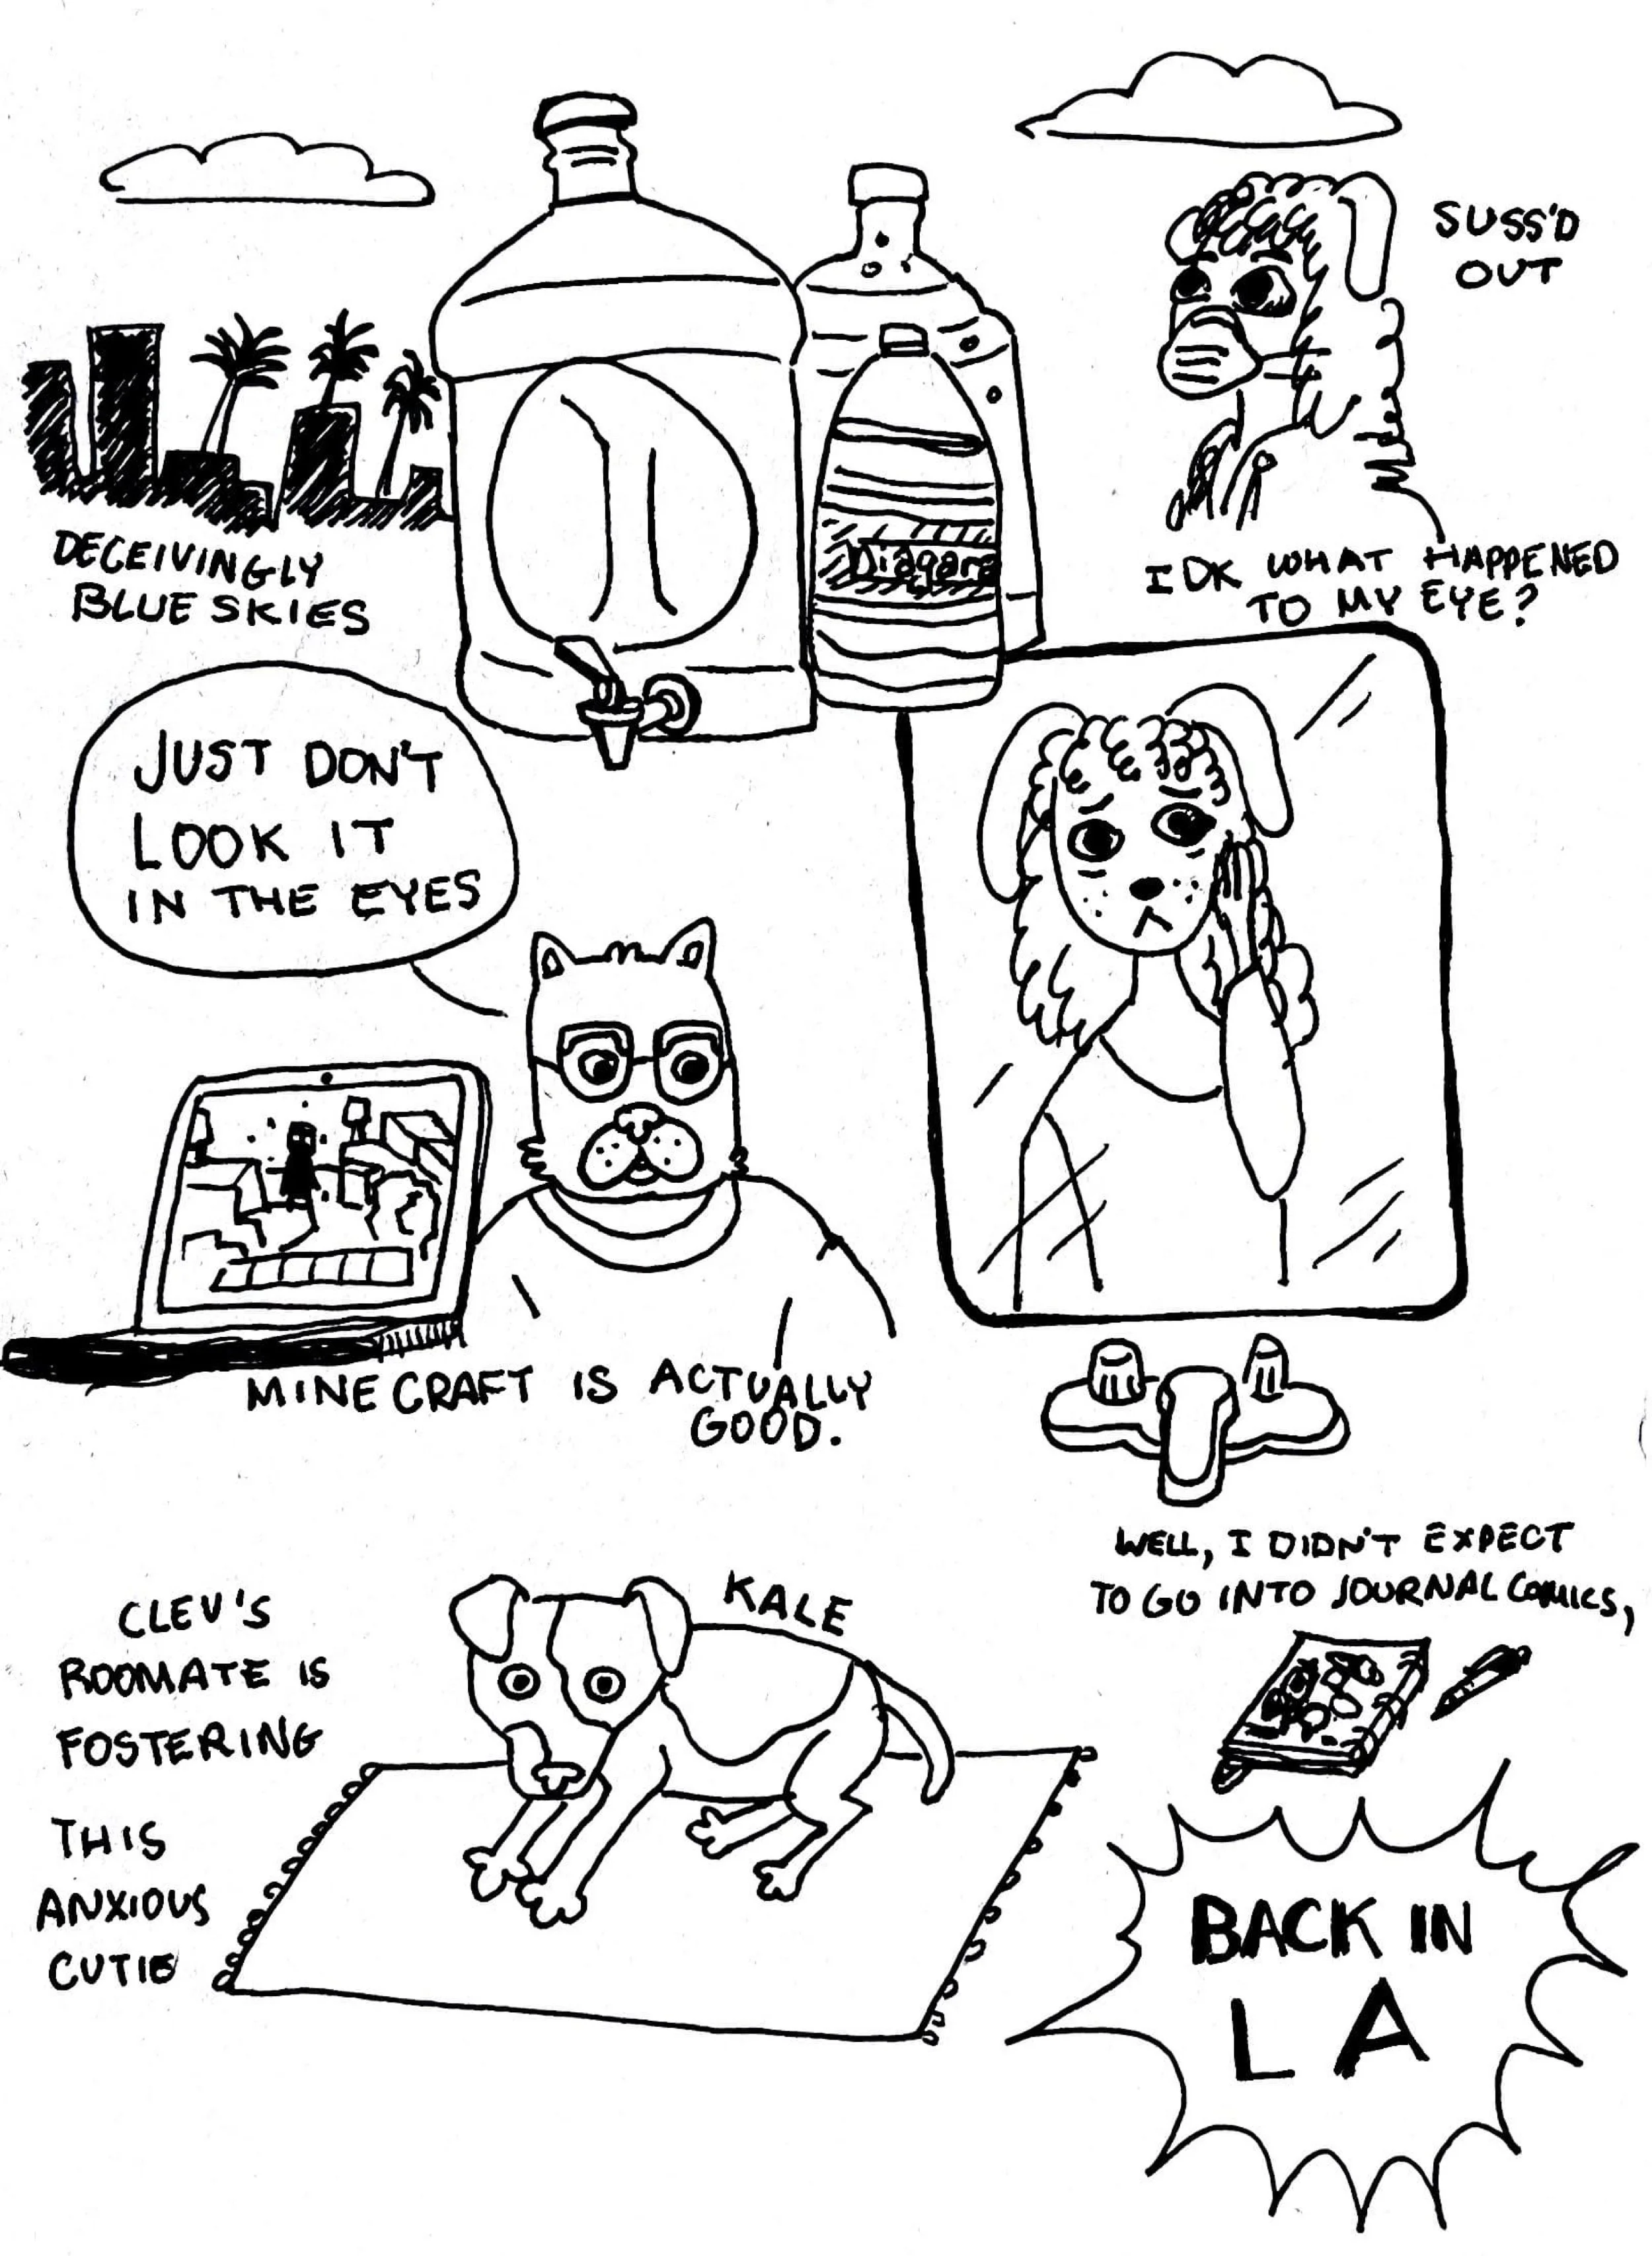 SUSS'D
OUT
DECEIVINGLY
BLUE SKIES
Niagara
IDK WHAT HAPPENED
TO MY EYE?
JUST DON'T
LOOK IT
IN THE EYES
MINECRAFT IS ACTUALLY
GOOD.
CLEV'S
ROOMATE IS
FOSTERING
THIS
ANXIOUS
CUTIE
KALE
WELL, I DIDN'T EXPECT
TO GO INTO JOURNAL COMICS,
BACK IN
LA